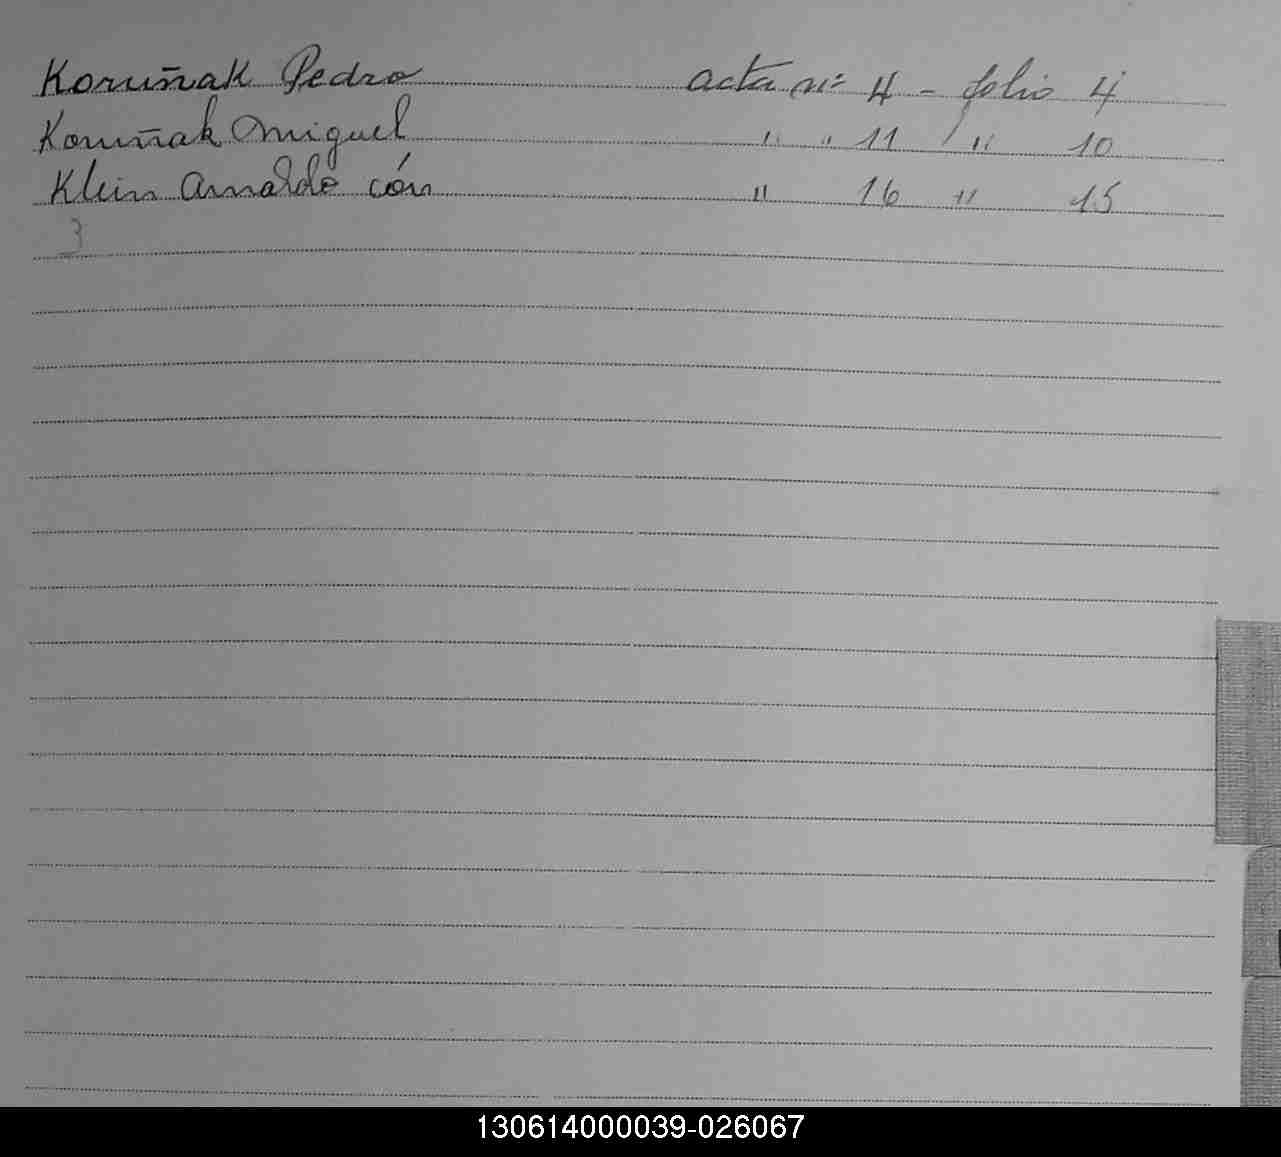 Koruñak Pedro acta nº 4 - folio 4
Koruñak Miguel " " 11 / " 10
Klein Arnaldo cón " 16 " 15
3
130614000039-026067